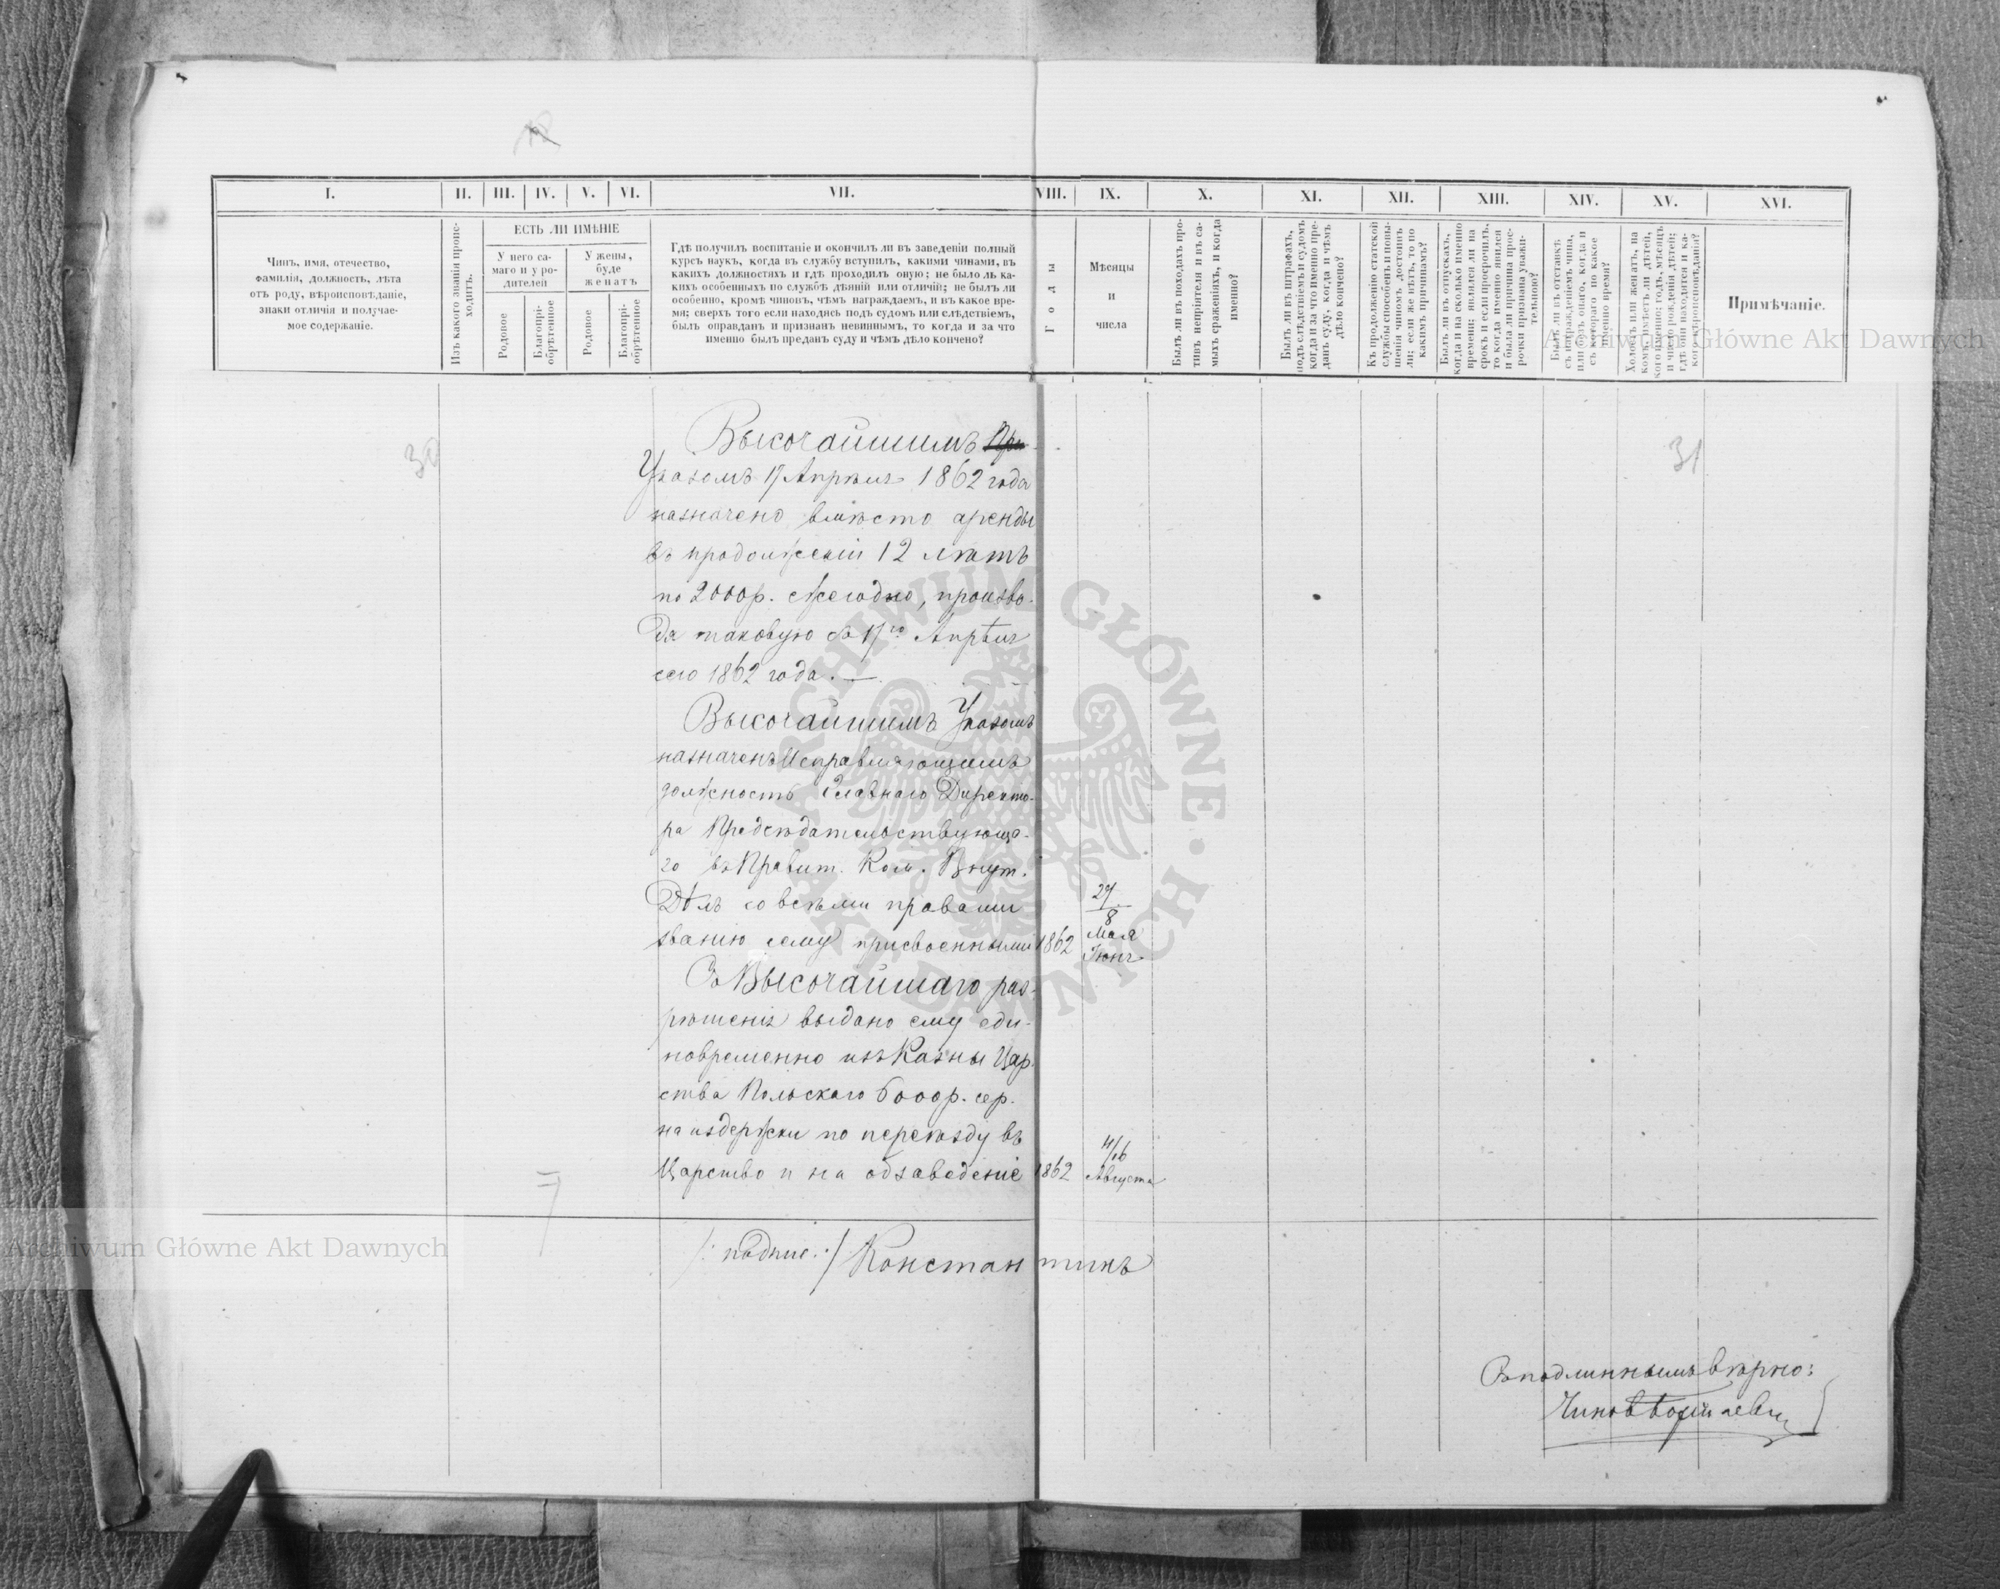 I. II. III. IV. V. VI. VII. VIII. IX. X. XI. XII. XIII. XIV. XV. XVI.
Чинъ, имя, отечество,
фамилія, должность, лѣта
отъ роду, вѣроисповѣданіе,
знаки отличія и получае-
мое содержаніе.
Изъ какого званія проис-
ходитъ.
ЕСТЬ ЛИ ИМѢНІЕ
У него са-
маго и у ро-
дителей
У жены,
буде
женатъ
Родовое
Благопрі-
обрѣтенное
Родовое
Благопрі-
обрѣтенное
Гдѣ получилъ воспитаніе и окончилъ ли въ заведеніи полный
курсъ наукъ, когда въ службу вступилъ, какими чинами, въ
какихъ должностяхъ и гдѣ проходилъ оную; не было ль ка-
кихъ особенныхъ по службѣ дѣяній или отличій; не былъ ли
особенно, кромѣ чиновъ, чѣмъ награждаемъ, и въ какое вре-
мя; сверхъ того если находясь подъ судомъ или слѣдствіемъ,
былъ оправданъ и признанъ невиннымъ, то когда и за что
именно былъ преданъ суду и чѣмъ дѣло кончено?
Годы
Мѣсяцы
и
числа
Былъ ли въ походахъ про-
тивъ непріятеля и въ са-
мыхъ сраженіяхъ, и когда
именно?
Былъ ли въ штрафахъ,
подъ слѣдствіемъ и судомъ
когда и за что именно пре-
данъ суду, когда и чѣмъ
дѣло кончено?
Къ продолженію статской
службы способенъ и повы-
шенія чиномъ достоинъ
ли; если же нѣтъ, то по
какимъ причинамъ?
Былъ ли въ отпускахъ,
когда и на сколько именно
времени; являлся ли на
срокъ и если просрочилъ,
то когда именно явился
и была ли причина прос-
рочки признана уважи-
тельною?
Былъ ли въ отставкѣ
съ награжденіемъ чина,
или безъ онаго, когда и
съ котораго по какое
именно время?
Холостъ или женатъ, на
комъ, имѣетъ ли дѣтей,
кого именно; годъ, мѣсяцъ
и число рожденія дѣтей;
гдѣ они находятся и ка-
кого вѣроисповѣданія?
Примѣчаніе.
30
31
Высочайшимъ При
Указомъ 17 Апрѣля 1862 года
назначено вмѣсто аренды
въ продолженіи 12 лѣтъ
по 2000 р. ежегодно, произво-
дя таковую съ 17го Апрѣля
сего 1862 года.
Высочайшимъ Указомъ
назначенъ Исправляющимъ
должность Главнаго Директо-
ра Предсѣдательствующа-
го въ Правит. Ком. Внут.
Дѣлъ со всѣми правами
званію сему присвоенными 1862 27/8 Мая Іюня
Съ Высочайшаго раз-
рѣшенія выдано ему еди-
новременно изъ Казны Цар-
ства Польскаго 6000 р. сер.
на издержки по переѣзду въ
Царство и на обзаведеніе 1862 4/16 Августа
/: подпис. :/ Константинъ
Съ подлиннымъ вѣрно:
Archiwum Główne Akt Dawnych
Archiwum Główne Akt Dawnych
ARCHIWUM GŁÓWNE · AKT DAWNYCH ·